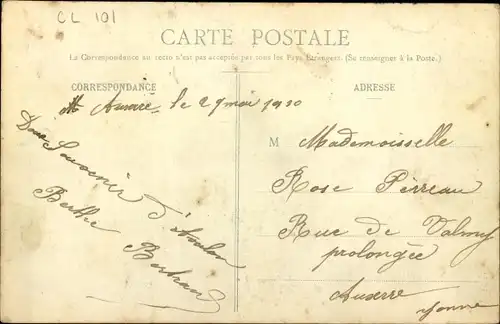 CL 101
CARTE POSTALE
La Correspondance au recto n'est pas acceptée par tous les Pays Etrangers. (Se renseigner à la Poste.)
CORRESPONDANCE
le 29 mai 1910
Doux Souvenir d'Avalon
Berthe Bertran
ADRESSE
M
Mademoisselle
Rose Perreau
Rue de Valmy
prolongée
Auxerre
Yonne